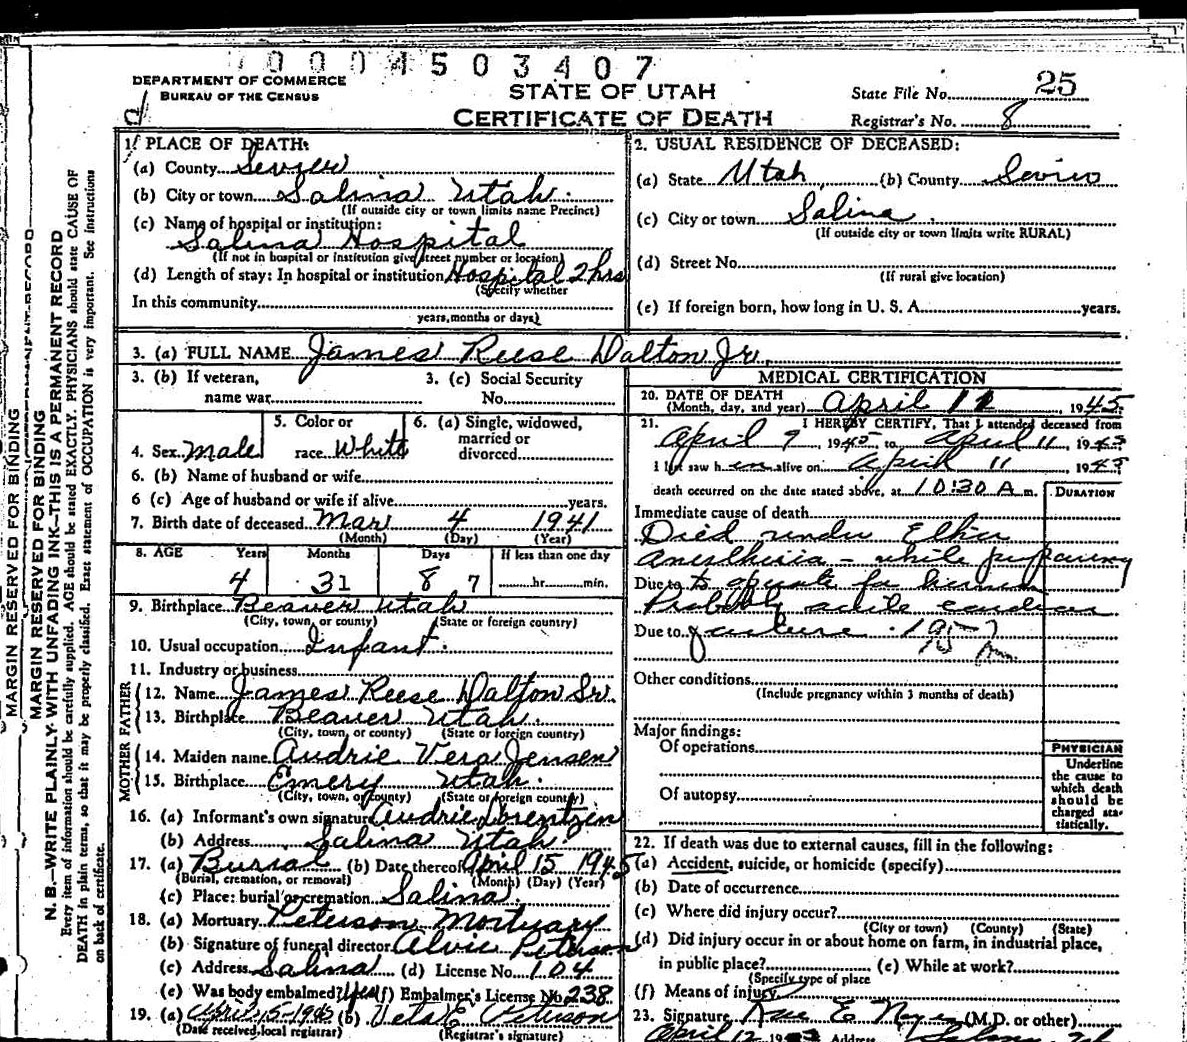 0004503407
DEPARTMENT OF COMMERCE
BUREAU OF THE CENSUS
STATE OF UTAH
CERTIFICATE OF DEATH
State File No. 25
Registrar's No. 8
MARGIN RESERVED FOR BINDING
MARGIN RESERVED FOR BINDING
N. B.—WRITE PLAINLY, WITH UNFADING INK—THIS IS A PERMANENT RECORD
Every item of information should be carefully supplied. AGE should be stated EXACTLY. PHYSICIANS should state CAUSE OF
DEATH in plain terms, so that it may be properly classified. Exact statement of OCCUPATION is very important. See instructions
on back of certificate.
1. PLACE OF DEATH:
(a) County Sevier
(b) City or town Salina Utah.
(If outside city or town limits name Precinct)
(c) Name of hospital or institution:
Salina Hospital
(If not in hospital or institution give street number or location)
(d) Length of stay: In hospital or institution Hospital 2 hrs
(Specify whether
In this community
years, months or days)
2. USUAL RESIDENCE OF DECEASED:
(a) State Utah (b) County Sevier
(c) City or town Salina
(If outside city or town limits write RURAL)
(d) Street No.
(If rural give location)
(e) If foreign born, how long in U. S. A. years.
3. (a) FULL NAME James Reese Dalton Jr.
3. (b) If veteran,
name war
3. (c) Social Security
No.
4. Sex Male
5. Color or
race White
6. (a) Single, widowed,
married or
divorced
6. (b) Name of husband or wife
6 (c) Age of husband or wife if alive years.
7. Birth date of deceased Mar 4 1941
(Month) (Day) (Year)
8. AGE Years Months Days If less than one day
4 31 8 7 hr. min.
9. Birthplace Beaver Utah
(City, town, or county) (State or foreign country)
10. Usual occupation Infant.
11. Industry or business
FATHER
12. Name James Reese Dalton Sr.
13. Birthplace Beaver Utah.
(City, town, or county) (State or foreign country)
MOTHER
14. Maiden name Audrie Vera Jensen
15. Birthplace Emery Utah.
(City, town, or county) (State or foreign country)
16. (a) Informant's own signature Audrie Lorentzen
(b) Address Salina Utah.
17. (a) Burial (b) Date thereof April 15 1945
(Burial, cremation, or removal) (Month) (Day) (Year)
(c) Place: burial or cremation Salina.
18. (a) Mortuary Peterson Mortuary
(b) Signature of funeral director Alvie Peterson
(c) Address Salina (d) License No. 104
(e) Was body embalmed? Yes (f) Embalmer's License No. 238
19. (a) April 15-1945 (b) Veta E Peterson
(Date received, local registrar) (Registrar's signature)
MEDICAL CERTIFICATION
20. DATE OF DEATH
(Month, day, and year) April 12, 1945
21. I HEREBY CERTIFY, That I attended deceased from
April 9, 1945 to April 11 1945
I last saw h im alive on April 11 1945
death occurred on the date stated above, at 10:30 A m.
DURATION
Immediate cause of death
Died under Ether
Anesthesia – while preparing
Due to to operate for hernia
Probably acute cardiac
Due to failure. 195
Other conditions
(Include pregnancy within 3 months of death)
Major findings:
Of operations
Of autopsy
PHYSICIAN
Underline
the cause to
which death
should be
charged sta-
tistically.
22. If death was due to external causes, fill in the following:
(a) Accident, suicide, or homicide (specify)
(b) Date of occurrence
(c) Where did injury occur?
(City or town) (County) (State)
(d) Did injury occur in or about home on farm, in industrial place,
in public place? (e) While at work?
(Specify type of place
(f) Means of injury
23. Signature Rae E Noyes (M.D. or other)
April 12 19 Address Salina